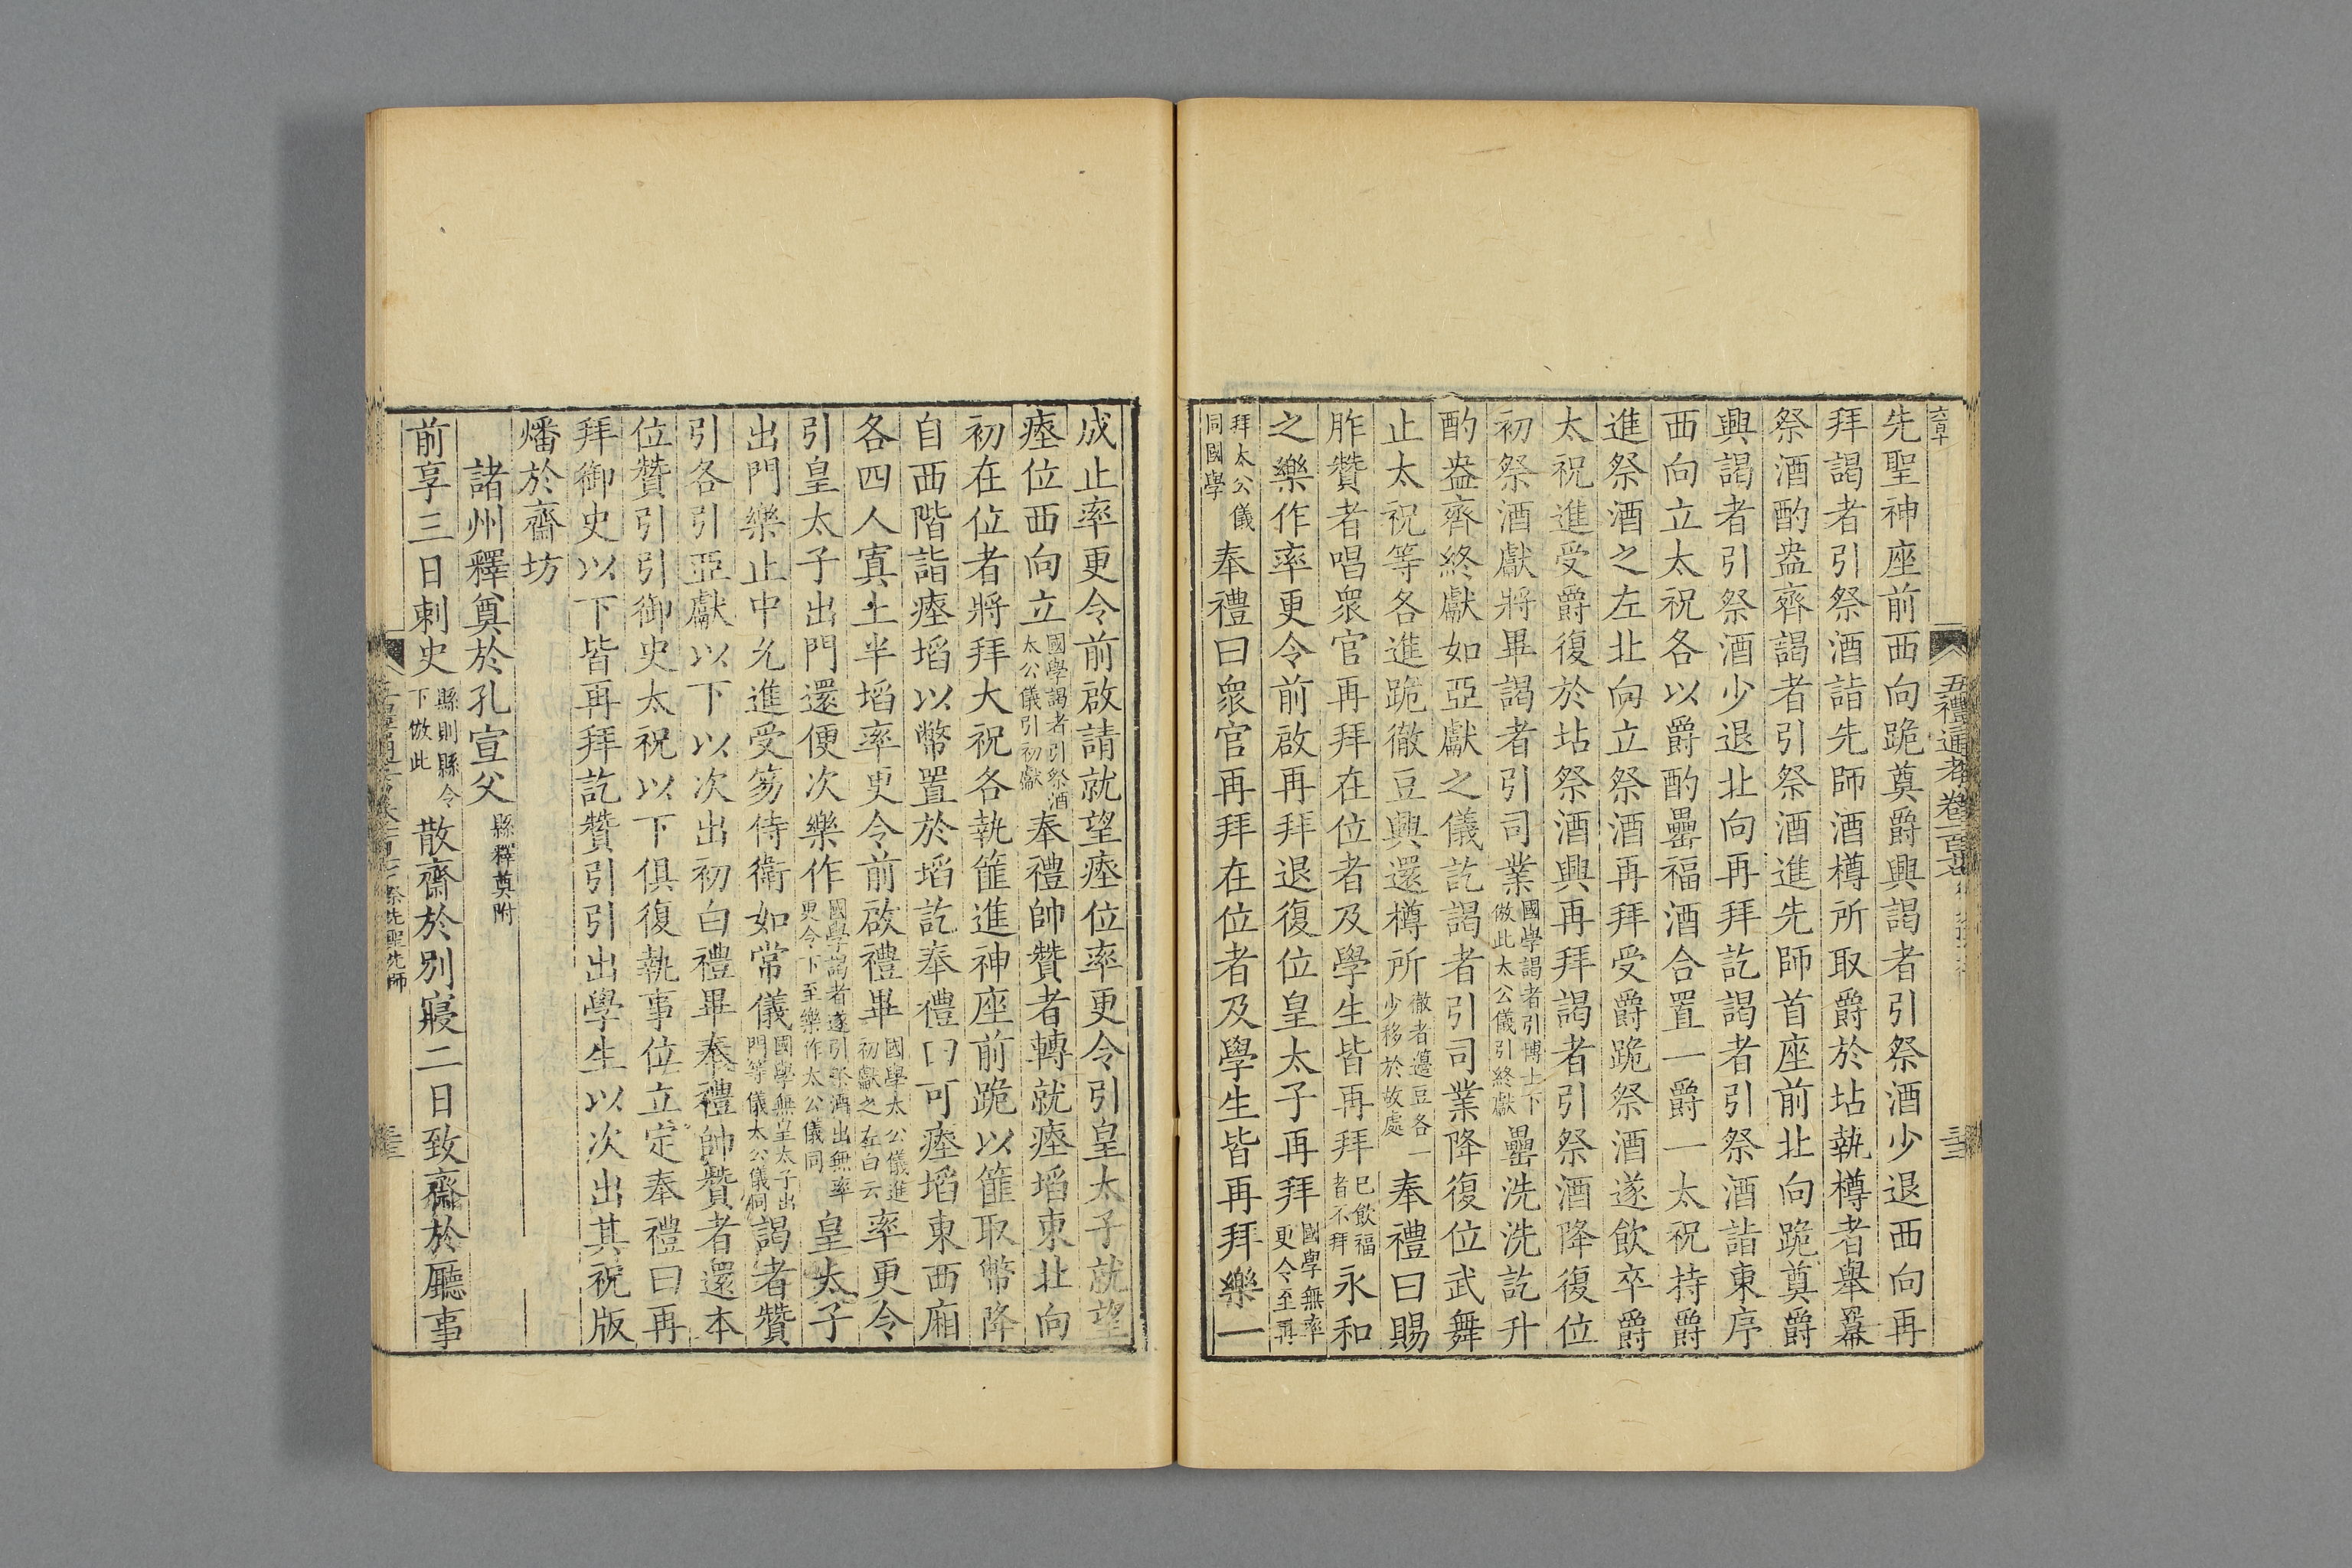 五禮通考卷一百
先聖神座前西向跪奠爵興謁者引祭酒少退西向再
拜謁者引祭酒詣先師酒樽所取爵於坫執樽者舉冪
祭酒酌盎齊謁者引祭酒進先師首座前北向跪奠爵
興謁者引祭酒少退北向再拜訖謁者引祭酒詣東序
西向立太祝各以爵酌罍福酒合置一爵一太祝持爵
進祭酒之左北向立祭酒再拜受爵跪祭酒遂飲卒爵
太祝進受爵復於坫祭酒興再拜謁者引祭酒降復位
初祭酒獻將畢謁者引司業國學謁者引博士下倣此太公儀引終獻罍洗洗訖升
酌盎齊終獻如亞獻之儀訖謁者引司業降復位武舞
止太祝等各進跪徹豆興還樽所徹者籩豆各一少移於故處奉禮曰賜
胙贊者唱眾官再拜在位者及學生皆再拜已飲福者不拜永和
之樂作率更令前啟再拜退復位皇太子再拜國學無率更令至再
拜太公儀同國學奉禮曰衆官再拜在位者及學生皆再拜樂一
成止率更令前啟請就望瘞位率更令引皇太子就望
瘞位西向立國學謁者引祭酒太公儀引初獻奉禮帥贊者轉就瘞埳東北向
初在位者將拜大祝各執篚進神座前跪以篚取幣降
自西階詣瘞埳以幣置於埳訖奉禮曰可瘞埳東西廂
各四人寘土半埳率更令前啟禮畢國學太公儀進初獻之左白云率更令
引皇太子出門還便次樂作國學謁者遂引祭酒出無率更令下至樂作太公儀同皇太子
出門樂止中允進受笏侍衛如常儀國學無皇太子出門等儀太公儀同謁者贊
引各引亞獻以下以次出初白禮畢奉禮帥贊者還本
位贊引引御史太祝以下俱復執事位立定奉禮曰再
拜御史以下皆再拜訖贊引引出學生以次出其祝版
燔於齋坊
諸州釋奠於孔宣父縣釋奠附
前享三日刺史縣則縣令下倣此散齋於別寢二日致齋於廳事
祭先聖先師